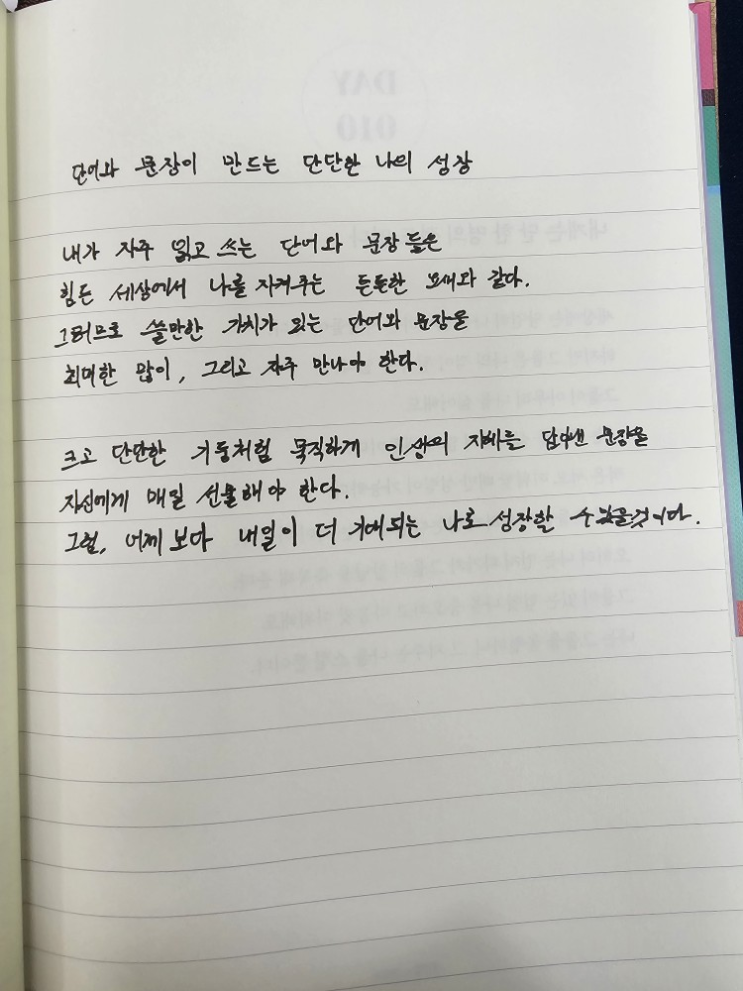 단어와 문장이 만드는 단단한 나의 성장
내가 자주 읽고 쓰는 단어와 문장들은
힘든 세상에서 나를 지켜주는 든든한 요새와 같다.
그러므로 쓸만한 가치가 있는 단어와 문장을
최대한 많이, 그리고 자주 만나야 한다.
크고 단단한 기둥처럼 묵직하게 인생의 지혜를 담아낸 문장을
자신에게 매일 선물해야 한다.
그럼, 어제보다 내일이 더 기대되는 나로 성장할 수 있을것이다.